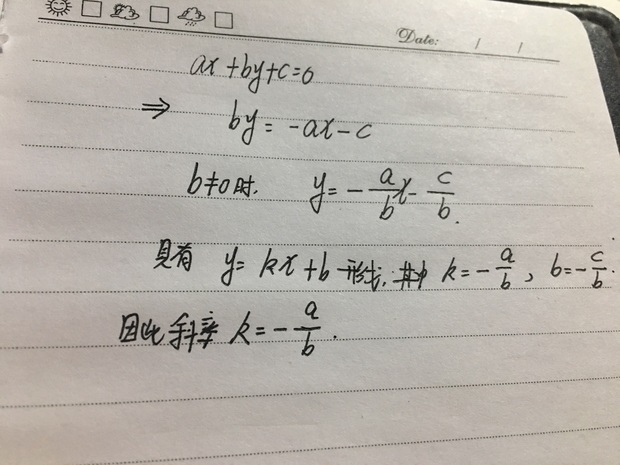 Date: / /
ax+by+c=0
⇒ by = -ax-c
b≠0时, y=-\frac{a}{b}x-\frac{c}{b}.
具有 y=kx+b 形式, 其中 k=-\frac{a}{b}, b=-\frac{c}{b}.
因此斜率 k=-\frac{a}{b}.